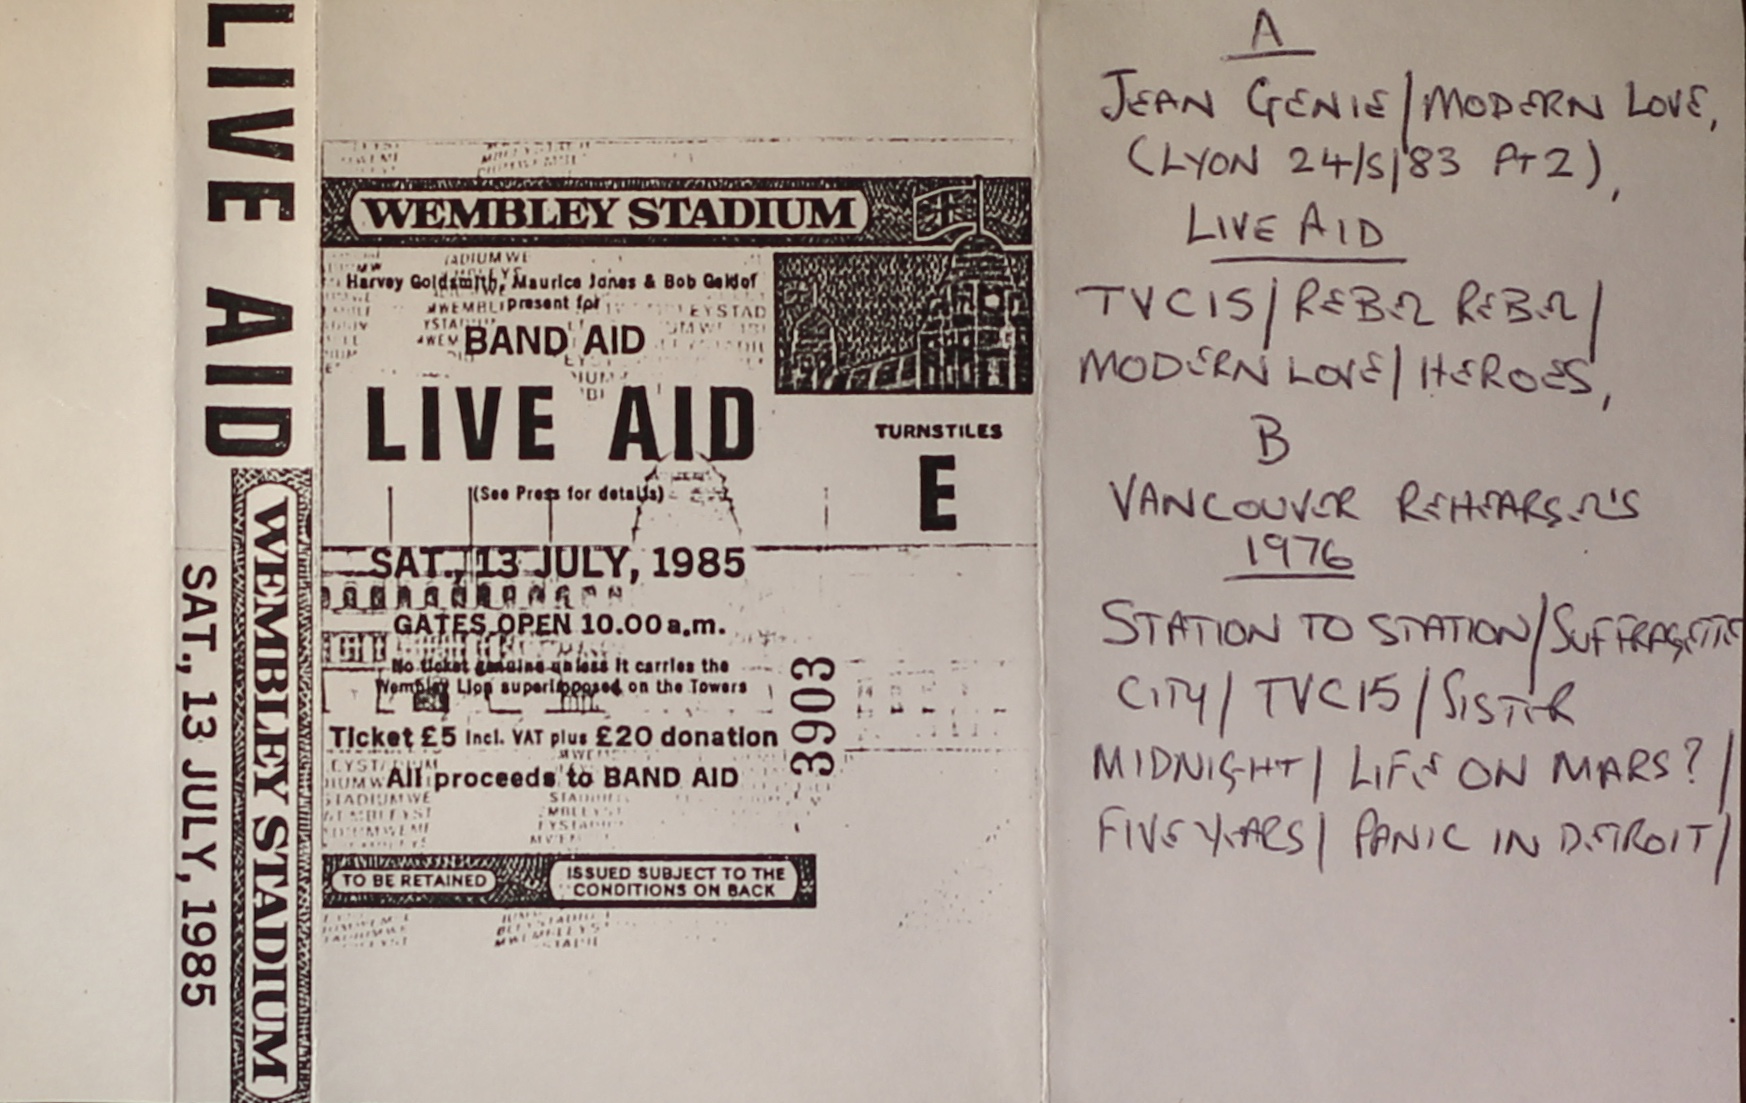 LIVE AID
WEMBLEY STADIUM
SAT., 13 JULY, 1985
WEMBLEY STADIUM
Harvey Goldsmith, Maurice Jones & Bob Geldof
present for
BAND AID
LIVE AID
(See Press for details)
SAT., 13 JULY, 1985
GATES OPEN 10.00 a.m.
No ticket genuine unless it carries the
Wembley Lion superimposed on the Towers
Ticket £5 incl. VAT plus £20 donation
All proceeds to BAND AID
TO BE RETAINED
ISSUED SUBJECT TO THE
CONDITIONS ON BACK
TURNSTILES
E
3903
A
JEAN GENIE/MODERN LOVE,
(LYON 24/5/83 Pt 2),
LIVE AID
TVC15/REBEL REBEL/
MODERN LOVE/HEROES,
B
VANCOUVER REHEARSEL'S
1976
STATION TO STATION/SUFFRAGETTE
CITY/TVC15/SISTER
MIDNIGHT/LIFE ON MARS?/
FIVE YEARS/PANIC IN DETROIT/